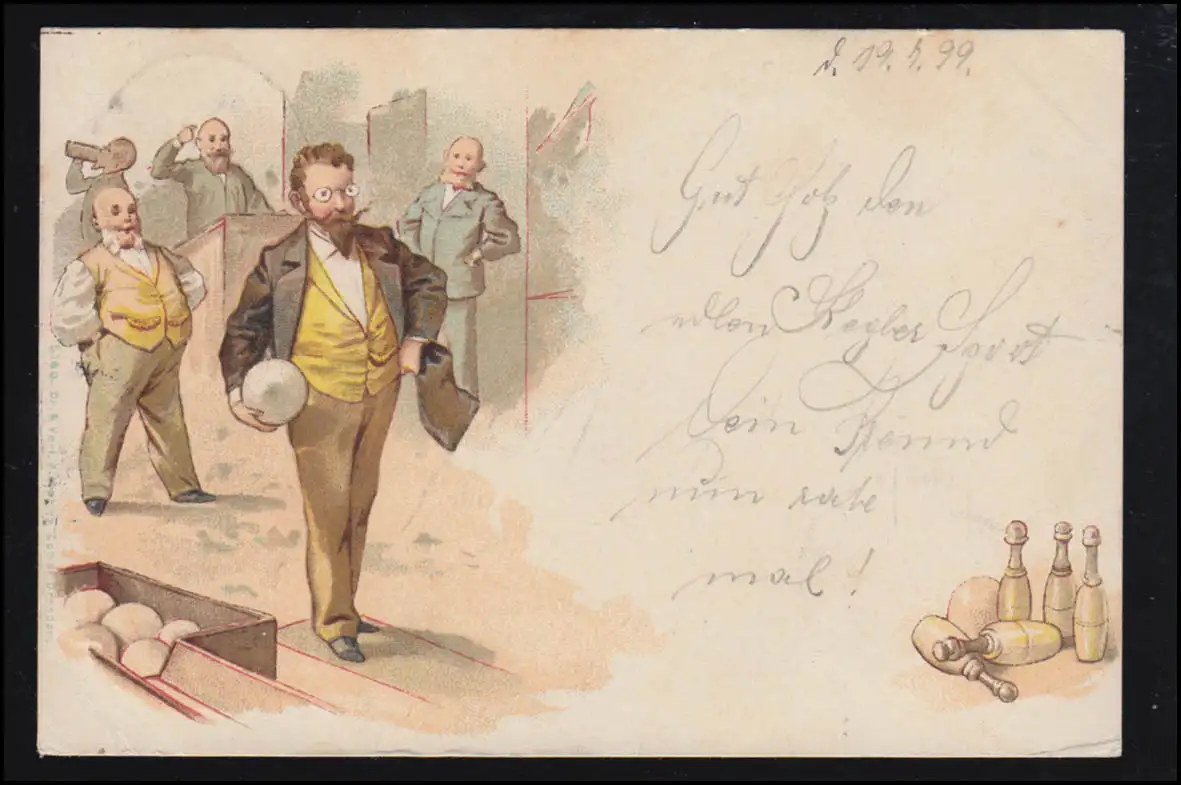 d. 19. 5. 99.
Gut Holz den
edlen Kegler Sport
Dein Freund
nun rate
mal!